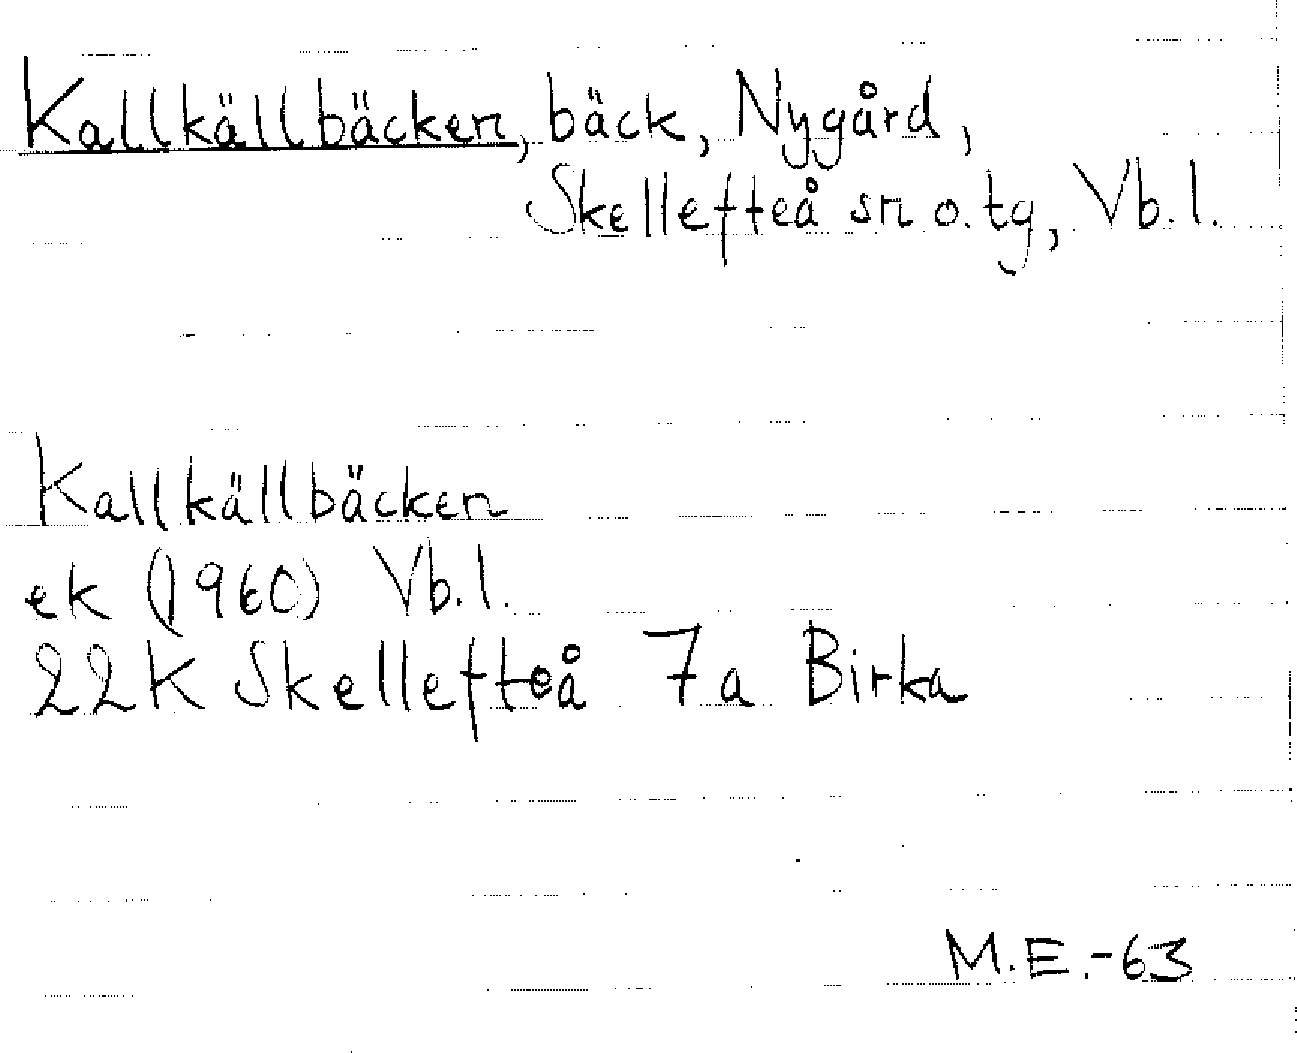 Kallkällbäcken, bäck, Nygård,
Skellefteå sn o. tg, Vb. l.
Kallkällbäcken
ek (1960) Vb. l.
22K Skellefteå 7a Birka
M.E.-63